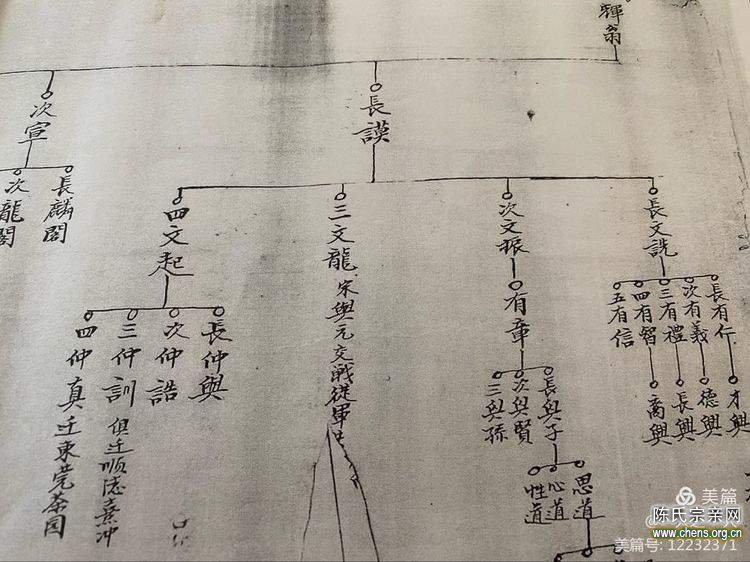 輝翁
長謨
次宣
長麟閣
次龍閣
長文詵
次文振
三文龍 宋與元交戰從軍
四文起
長有仁
次有義
三有禮
四有智
五有信
才興
德興
長興
喬興
有章
長與子
次與賢
三與孫
思道
心道
性道
長仲與
次仲誥
三仲訓 但迁顺德熹冲
四仲真 迁東莞茶园
美篇
陈氏宗亲网
www.chens.org.cn
美篇号: 12232371